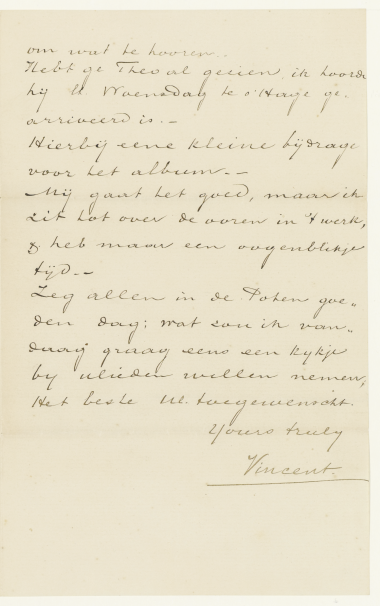 om wat te hooren.
Hebt ge Theo al gezien, ik hoorde
hij ll. Woensdag te s'Hage ge-
arriveerd is.-
Hierbij eene kleine bijdrage
voor het album.-
Mij gaat het goed, maar ik
zit tot over de ooren in 't werk,
& heb maar een oogenblikje
tijd.-
Zeg allen in de Poten goe„
den dag; wat zou ik van„
daag graag eens een kijkje
bij ulieden willen nemen,
Het beste Ul. toegewenscht.
Yours truly
Vincent.